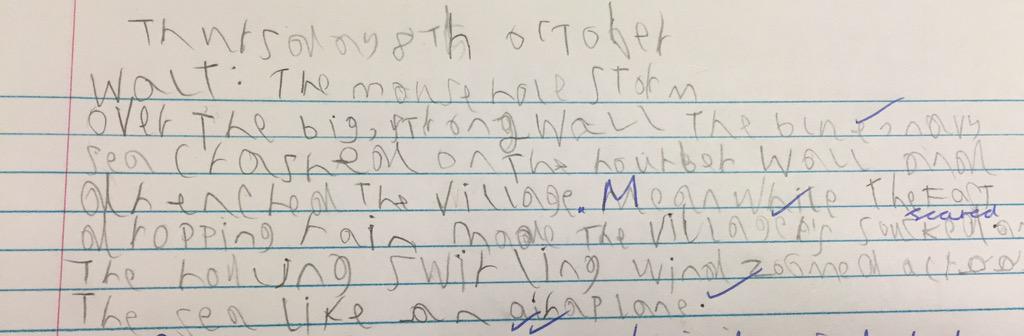 Thursday 8th october
Walt: The mousehole storm
over The big, strong wall The blue, navy
sea crashed on The hourber wall and
drenched The village. Meanwhile The Fast
scared
dropping rain made The villagers
The howling swirling wind zoomed across
The sea like an airaplane.